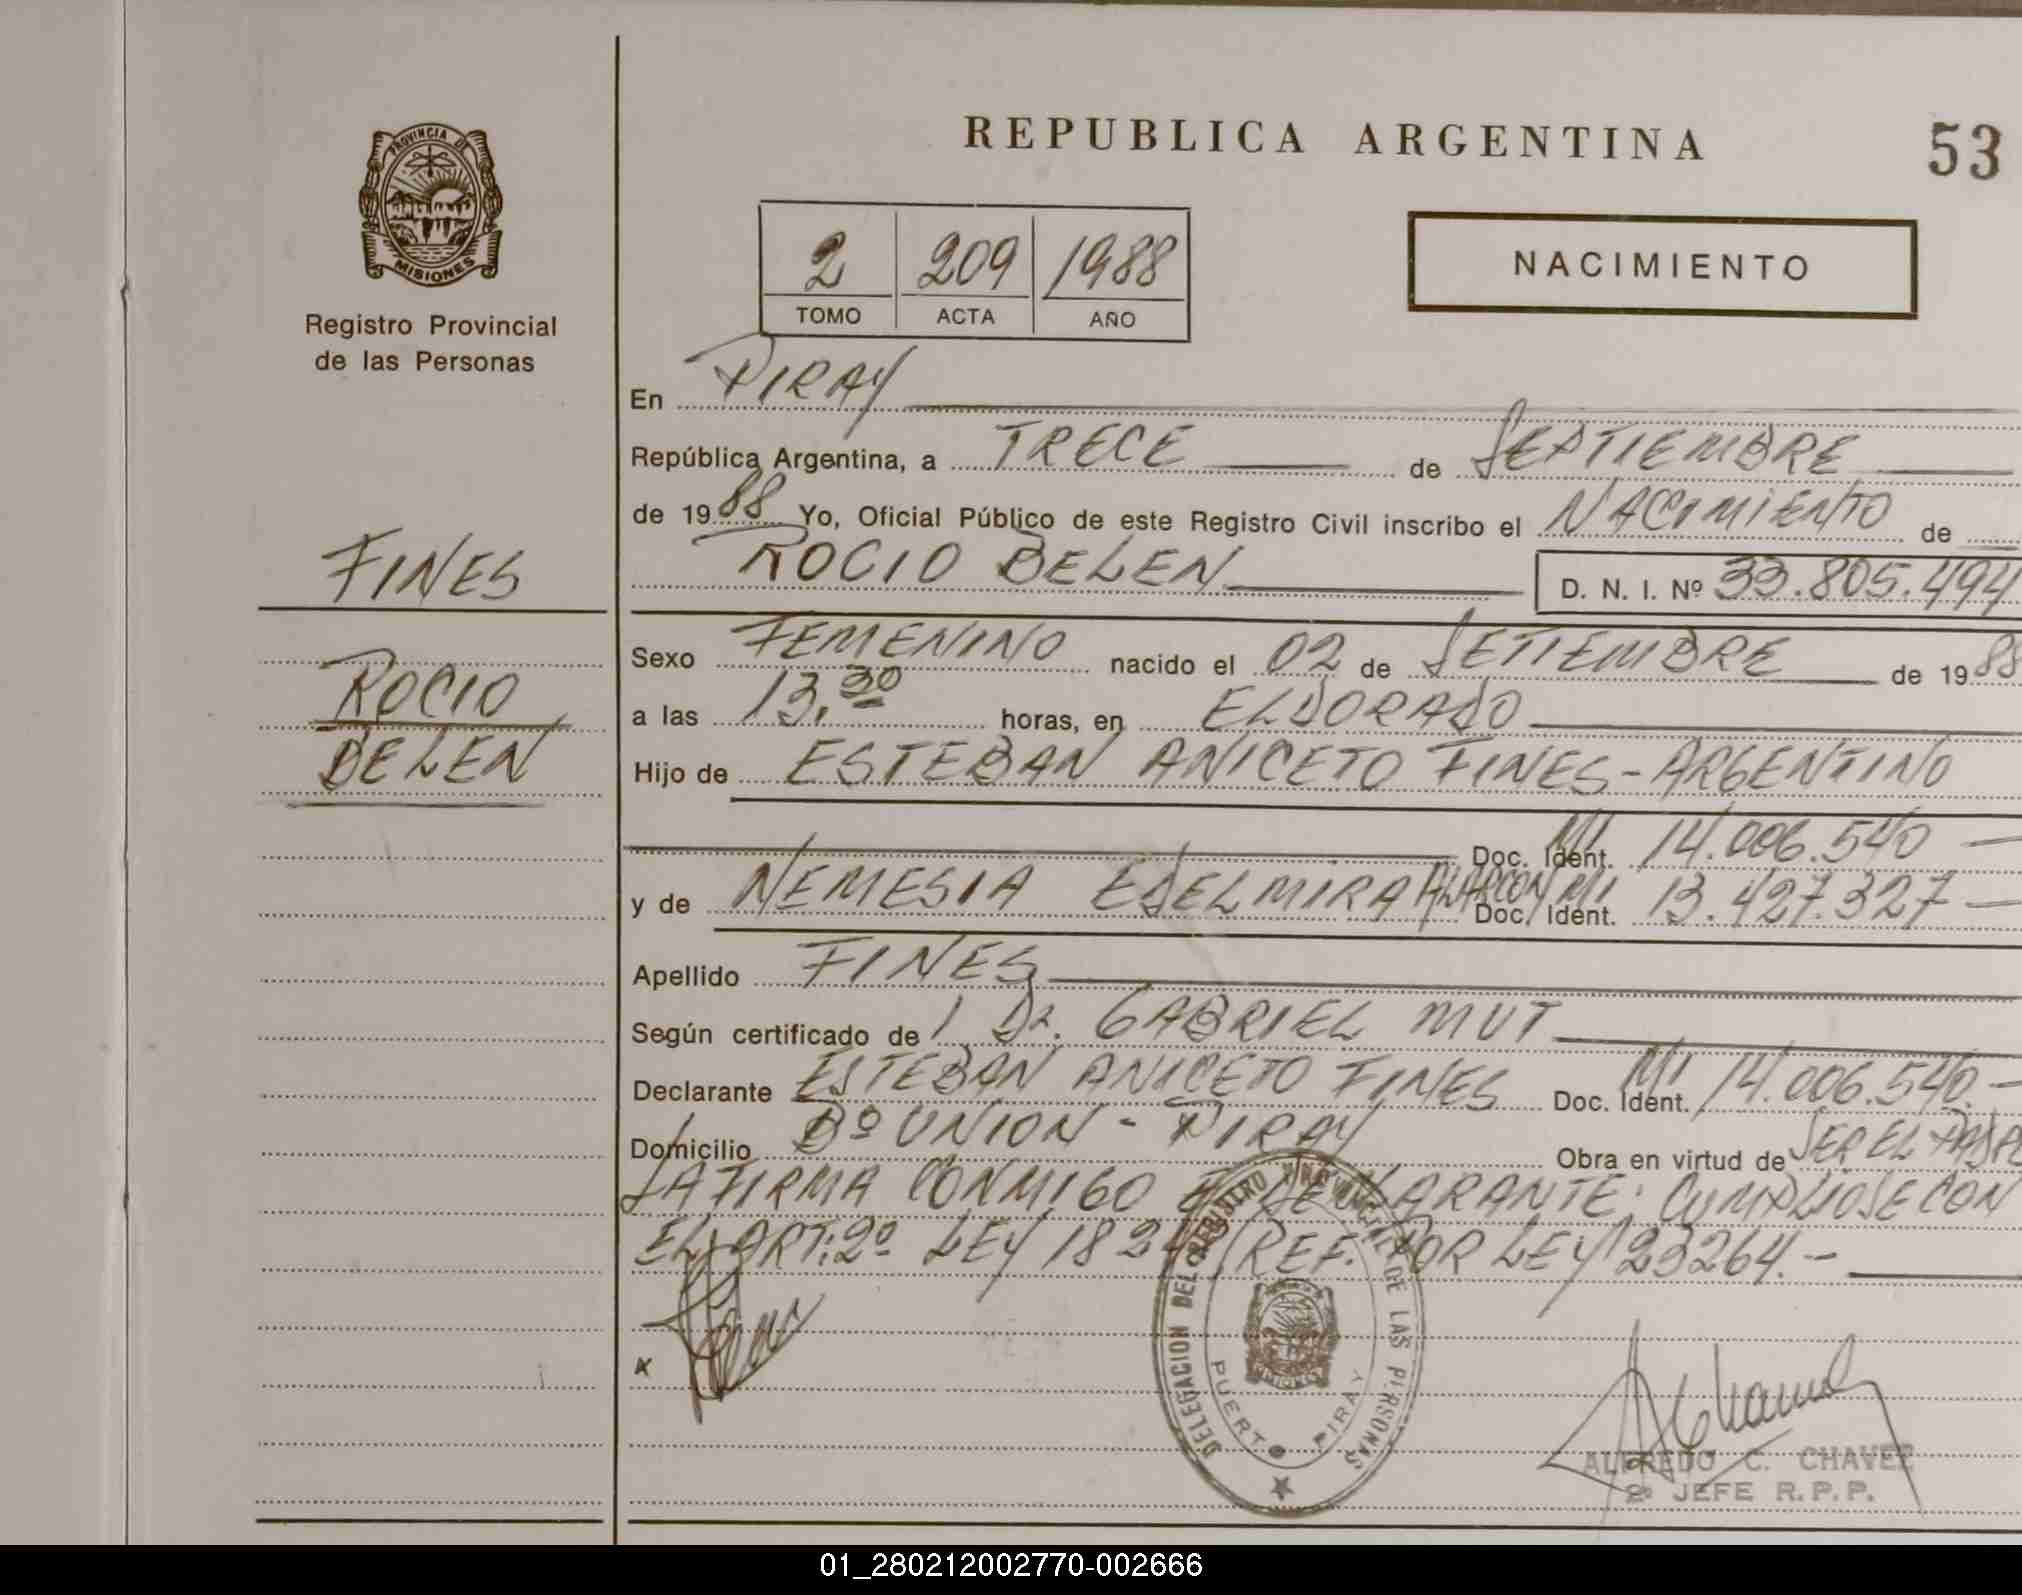 PROVINCIA DE
MISIONES
Registro Provincial
de las Personas
FINES
ROCIO
BELEN
REPUBLICA ARGENTINA
53
2 209 1988
TOMO ACTA AÑO
NACIMIENTO
En PIRAY
República Argentina, a TRECE de SEPTIEMBRE
de 1988 Yo, Oficial Público de este Registro Civil inscribo el NACIMIENTO de
ROCIO BELEN D. N. I. Nº 33.805.494
Sexo FEMENINO nacido el 02 de SETIEMBRE de 1988
a las 13,30 horas, en ELDORADO
Hijo de ESTEBAN ANICETO FINES - ARGENTINO
Doc. Ident. MI 14.006.540
y de NEMESIA EDELMIRA ALARCON Doc. Ident. MI 13.427.327
Apellido FINES
Según certificado de Dr. GABRIEL MUT
Declarante ESTEBAN ANICETO FINES Doc. Ident. MI 14.006.540.-
Domicilio Bº UNION - PIRAY Obra en virtud de SER EL
LA FIRMA CONMIGO DECLARANTE; CUMPLIOSE CON
EL ART: 2º LEY (REF. POR LEY 23264.-
DELEGACION DEL REGISTRO PROVINCIAL DE LAS PERSONAS
PUERTO PIRAY
ALFREDO C. CHAVEZ
2º JEFE R.P.P.
01_280212002770-002666